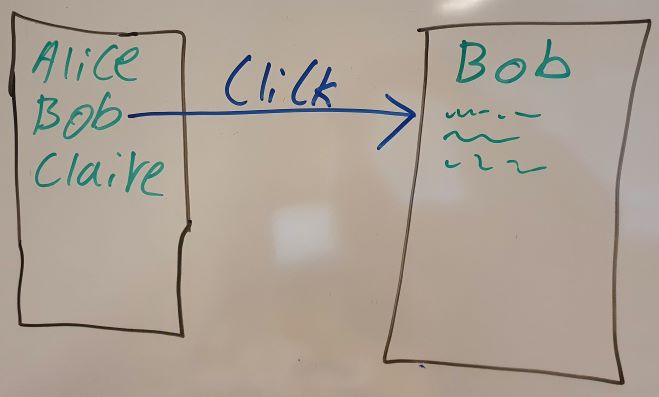 Alice
Bob
Claire
Click
Bob